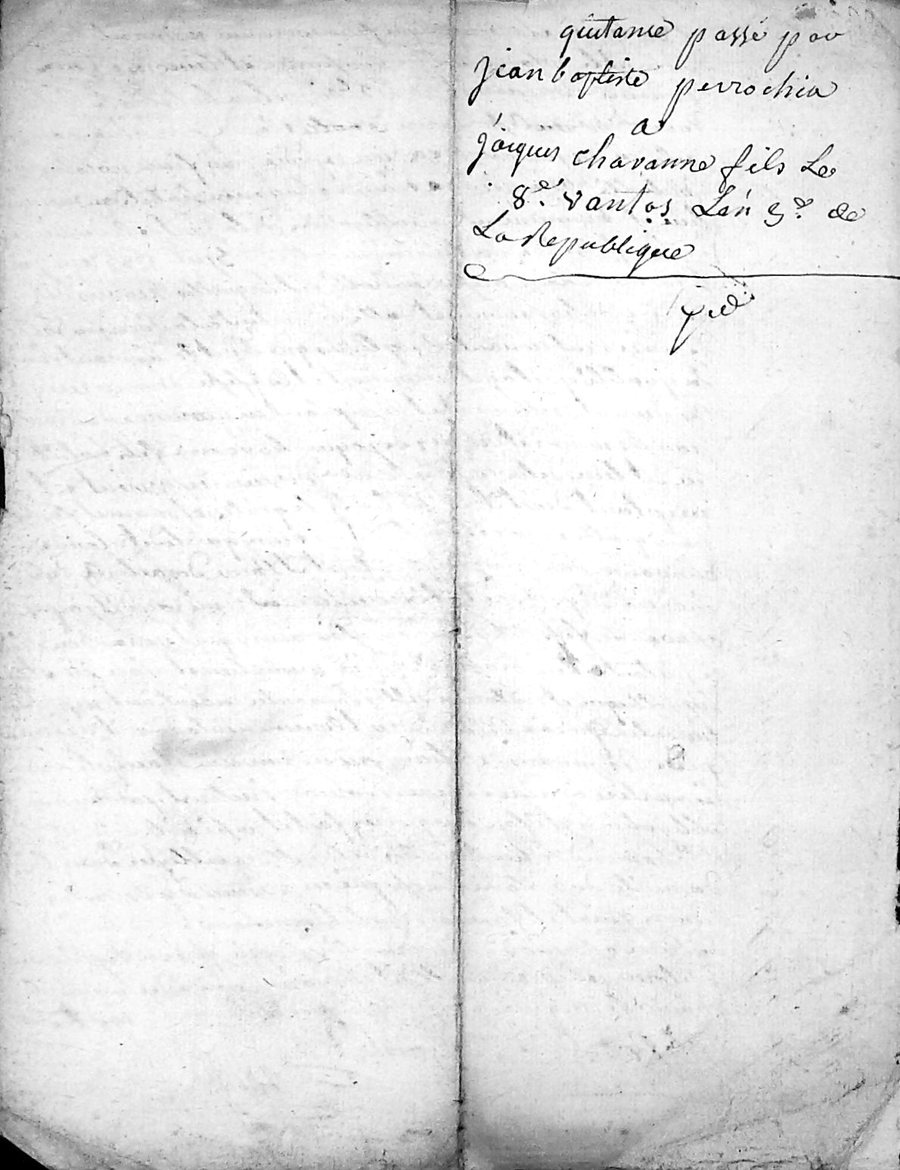 quitance passé par
jean baptiste perrochia
a
jacques chavanne fils Le
8.e vantos Lan 3.e de
La Republique